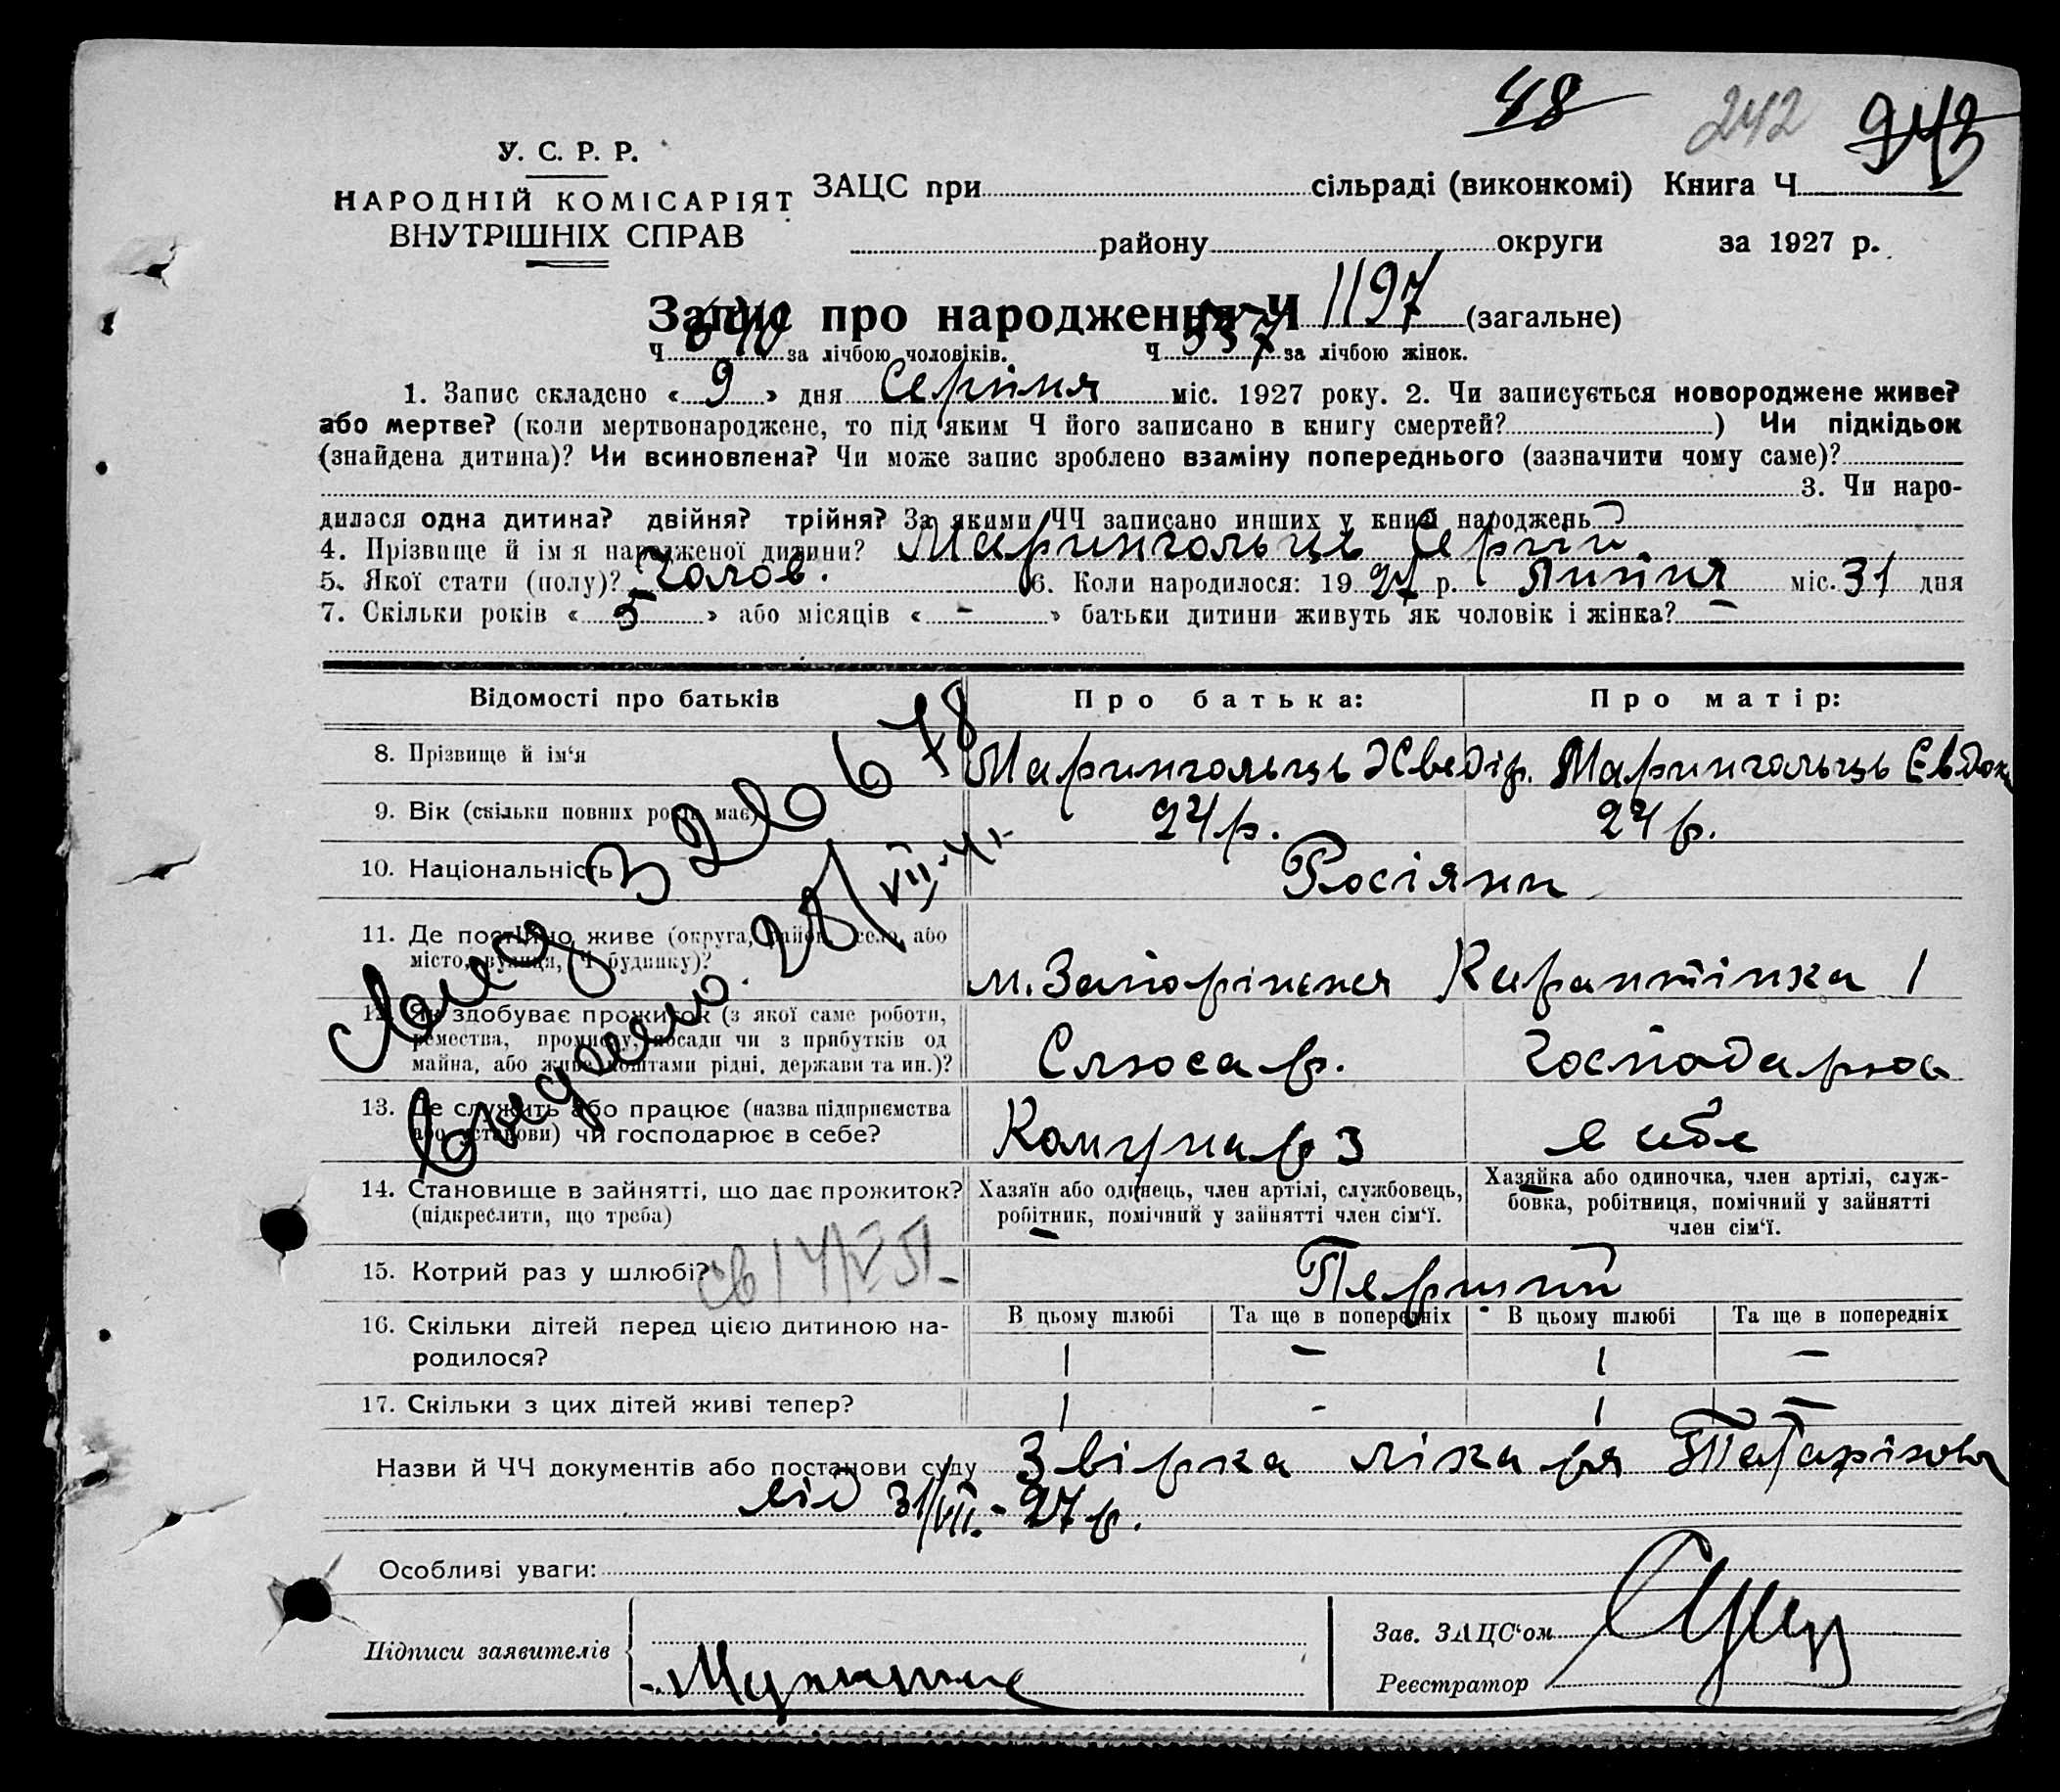 48 242 243
У. С. Р. Р.
НАРОДНІЙ КОМІСАРІЯТ
ВНУТРІШНІХ СПРАВ
ЗАЦС при сільраді (виконкомі) Книга Ч
району округи за 1927 р.
Запис про народження Ч 1197 (загальне)
Ч 640 за лічбою чоловіків. Ч 557 за лічбою жінок.
1. Запис складено « 9 » дня Серпня міс. 1927 року. 2. Чи записується новороджене живе?
або мертве? (коли мертвонароджене, то під яким Ч його записано в книгу смертей? ) Чи підкідьок
(знайдена дитина)? Чи всиновлена? Чи може запис зроблено взаміну попереднього (зазначити чому саме)?
3. Чи наро-
дилася одна дитина? двійня? трійня? За якими ЧЧ записано инших у книзі народжень
4. Прізвище й ім'я народженої дитини? Марингольць Сергій
5. Якої стати (полу)? Чолов. 6. Коли народилося: 1927 р. Липня міс. 31 дня
7. Скільки років « 5 » або місяців « - » батьки дитини живуть як чоловік і жінка? -
Відомості про батьків Про батька: Про матір:
8. Прізвище й ім'я Марингольць Хведір. Марингольць Євдок
9. Вік (скільки повних років має) 24 р. 24 р.
10. Національність Росіяни
11. Де постійно живе (округа, район, село, або
місто, вулиця, Ч будинку)? м. Запоріжжя Карантінка 1
12. Як здобуває прожиток (з якої саме роботи,
ремества, промислу, посади чи з прибутків од
майна, або живе коштами рідні, держави та ин.)? Слюсар. Господарює
13. Де служить або працює (назва підприємства
або установи) чи господарює в себе? Комунар з в себе
14. Становище в зайнятті, що дає прожиток?
(підкреслити, що треба)
Хазяїн або одинець, член артілі, службовець,
робітник, помічний у зайнятті член сім'ї.
Хазяйка або одиночка, член артілі, служ-
бовка, робітниця, помічний у зайнятті
член сім'ї.
15. Котрий раз у шлюбі? Перший
В цьому шлюбі Та ще в попередніх В цьому шлюбі Та ще в попередніх
16. Скільки дітей перед цією дитиною на-
родилося? 1 - 1 -
17. Скільки з цих дітей живі тепер? 1 - 1 -
Назви й ЧЧ документів або постанови суду Звірка лікаря
від 31/VII - 27 р.
Особливі уваги:
Підписи заявителів
Зав. ЗАЦС'ом
Реєстратор